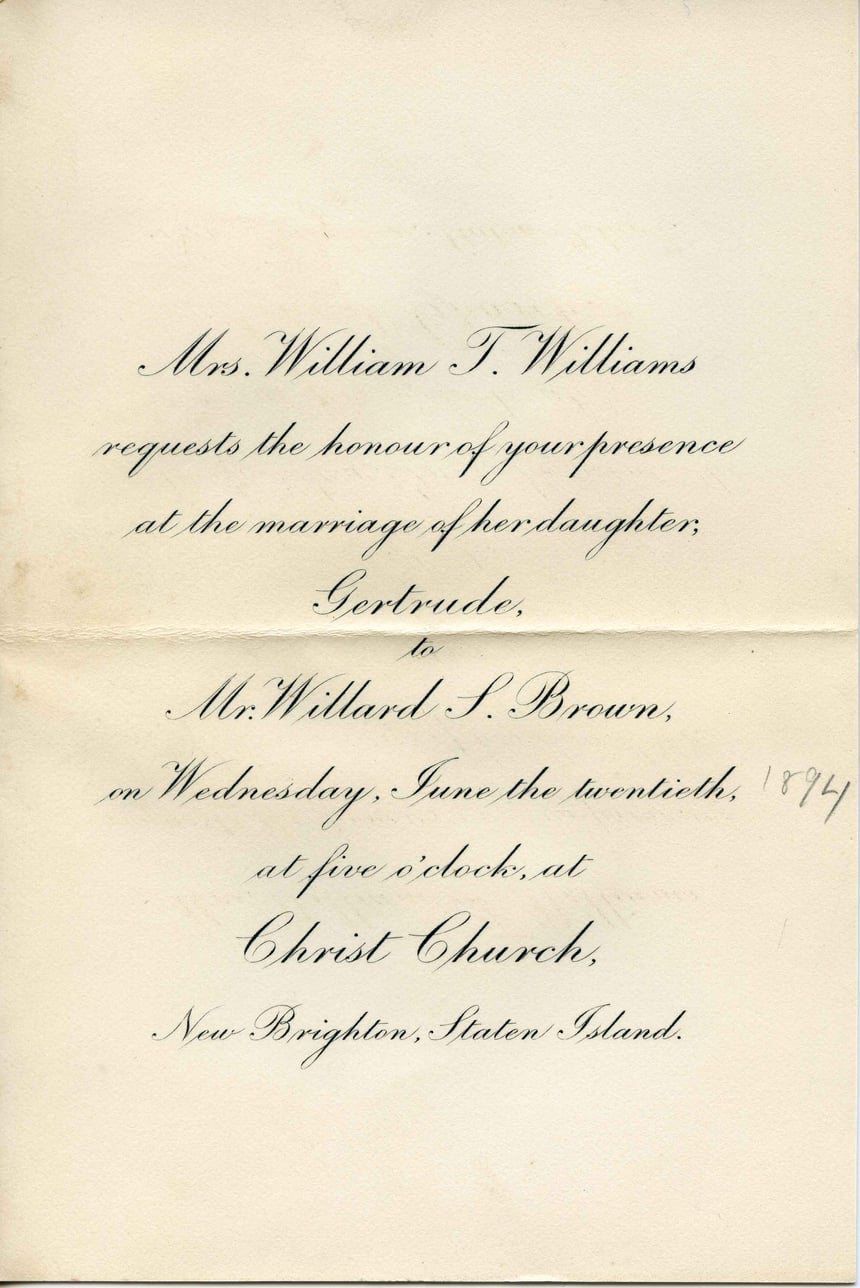 Mrs. William T. Williams
requests the honour of your presence
at the marriage of her daughter,
Gertrude,
to
Mr. Willard S. Brown,
on Wednesday, June the twentieth, 1894
at five o'clock, at
Christ Church,
New Brighton, Staten Island.